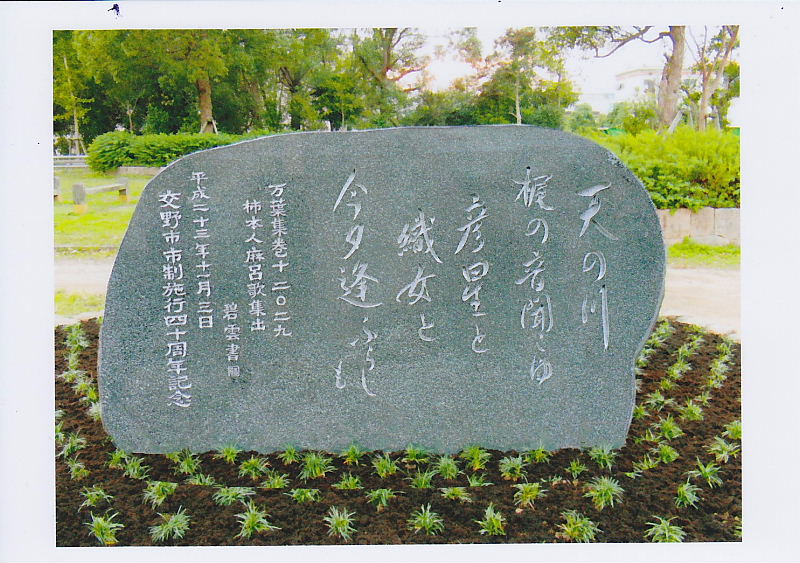 天の川
梶の音聞こゆ
彦星と
織女と
今夕逢ふらしも
万葉集巻十 二〇二九
柿本人麻呂歌集出
碧雲書
平成二十三年十一月三日
交野市市制施行四十周年記念